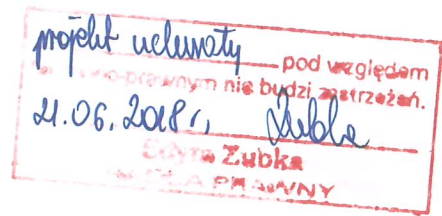 projekt uchwały pod względem
-prawnym nie budzi zastrzeżeń.
21.06.2018 r, Zubka
Edyta Zubka
PRAWNY